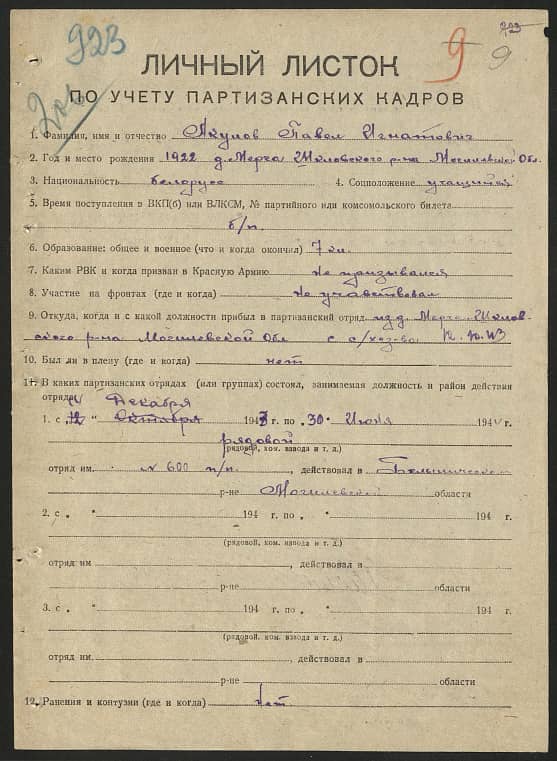 923
9 9
ЛИЧНЫЙ ЛИСТОК
ПО УЧЕТУ ПАРТИЗАНСКИХ КАДРОВ
1. Фамилия, имя и отчество Якупов Павел Игнатович
2. Год и место рождения 1922 д. Мерга Шкловского р-на Могилевской Обл.
3. Национальность белорусс 4. Соцположение учащийся
5. Время поступления в ВКП(б) или ВЛКСМ, № партийного или комсомольского билета
б/п.
6. Образование: общее и военное (что и когда окончил) 7 кл.
7. Каким РВК и когда призван в Красную Армию не призывался
8. Участие на фронтах (где и когда) не участвовал
9. Откуда, когда и с какой должности прибыл в партизанский отряд из д. Мерга Шклов-
ского р-на Могилевской Обл с с/хозева
10. Был ли в плену (где и когда) нет
11. В каких партизанских отрядах (или группах) состоял, занимаемая должность и район действия
отряда Декабря
1. с " Октября 1943 г. по 30 Июня 194 г.
рядовой
(рядовой, ком. взвода и т. д.)
отряд им. 600 п/п. , действовал в Белыничском
р-не Могилевской области
2. с " 194 г. по " 194 г.
(рядовой, ком. взвода и т. д.)
отряд им , действовал в
р-не области
3. с " 194 г. по " 194 г.
(рядовой, ком. взвода и т. д.)
отряд им , действовал в
р-не области
12. Ранения и контузии (где и когда) нет